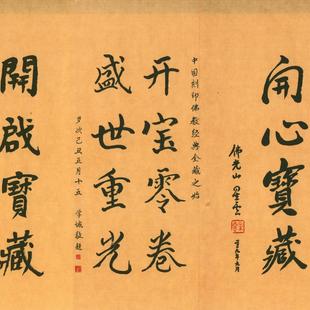 開心寶藏
佛光山 星雲
中国刻印佛教經典全藏之始
开宝零卷
盛世重光
岁次己丑五月十五 学诚敬题
開啟寶藏